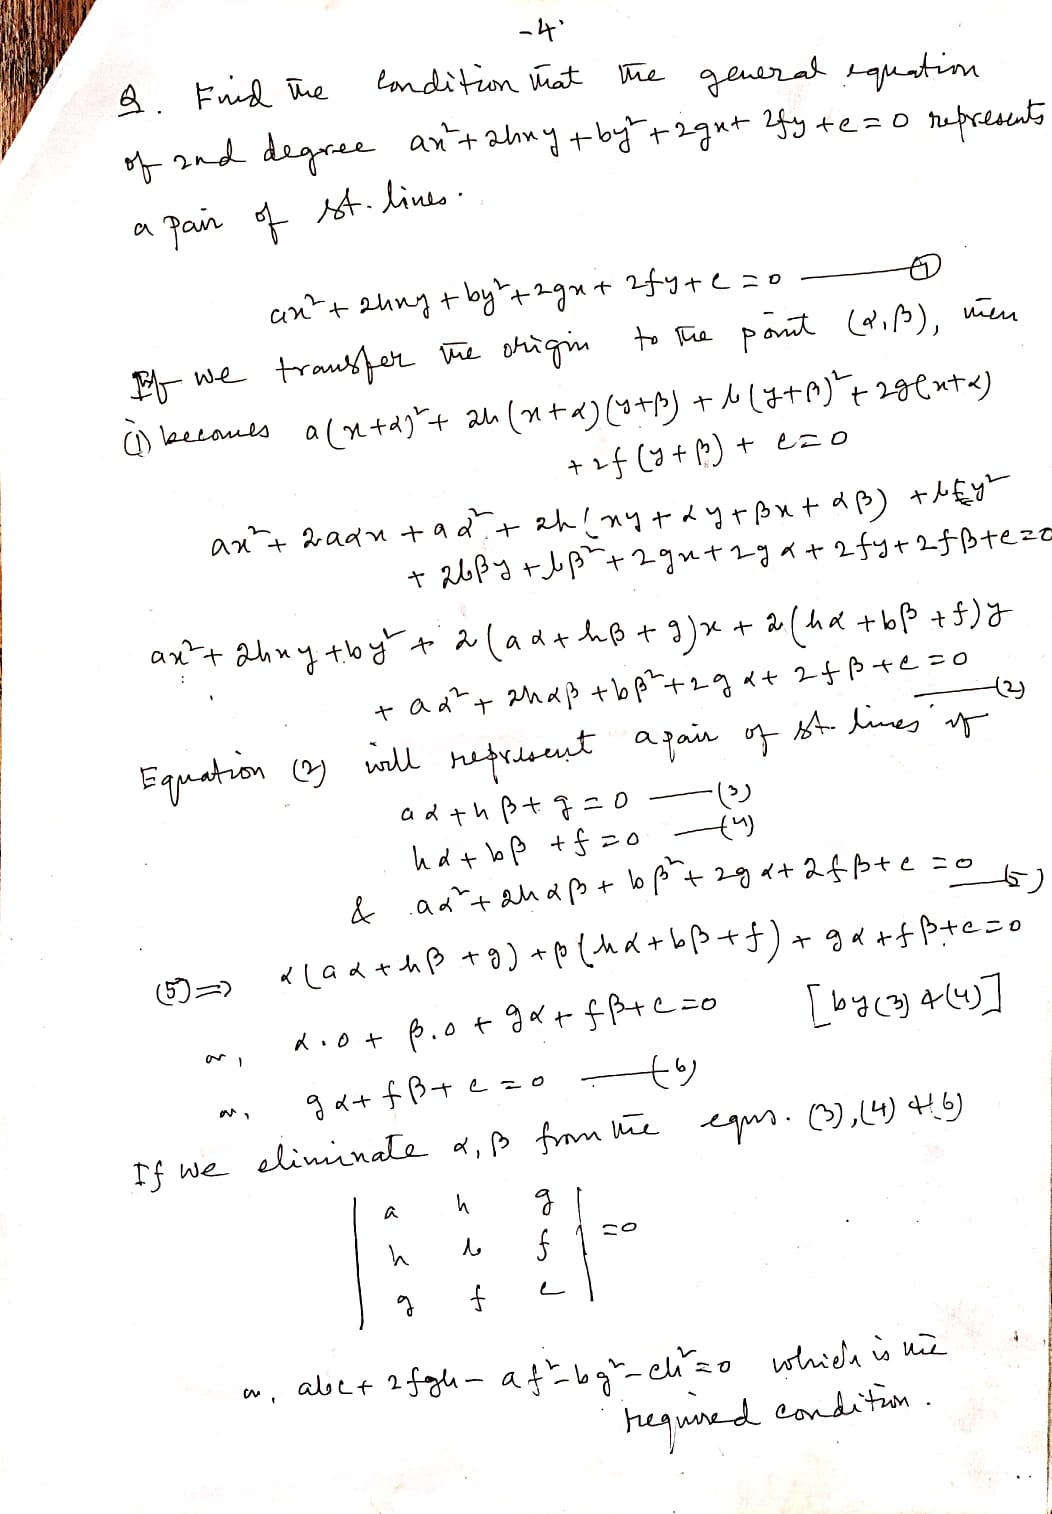 -4·
Q. Find the condition that the general equation
of 2nd degree ax²+2hxy+by²+2gx+2fy+c=0 represents
a pair of st. lines.
ax²+2hxy+by²+2gx+2fy+c=0 —— (1)
If we transfer the origin to the point (α,β), then
(1) becomes a(x+α)²+2h(x+α)(y+β)+b(y+β)²+2g(x+α)
+2f(y+β)+c=0
ax²+2aαx+aα²+2h(xy+αy+βx+αβ)+by²
+2bβy+bβ²+2gx+2gα+2fy+2fβ+c=0
ax²+2hxy+by²+2(aα+hβ+g)x+2(hα+bβ+f)y
+aα²+2hαβ+bβ²+2gα+2fβ+c=0 —(2)
Equation (2) will represent a pair of st. lines if
aα+hβ+g=0 —(3)
hα+bβ+f=0 —(4)
& aα²+2hαβ+bβ²+2gα+2fβ+c=0 —(5)
(5)=> α(aα+hβ+g)+β(hα+bβ+f)+gα+fβ+c=0
or, α.0+β.0+gα+fβ+c=0 [by (3) & (4)]
or, gα+fβ+c=0 —(6)
If we eliminate α, β from the eqns. (3),(4) & (6)
| a h g |
| h b f | =0
| g f c |
or, abc+2fgh-af²-bg²-ch²=0 which is the
required condition.